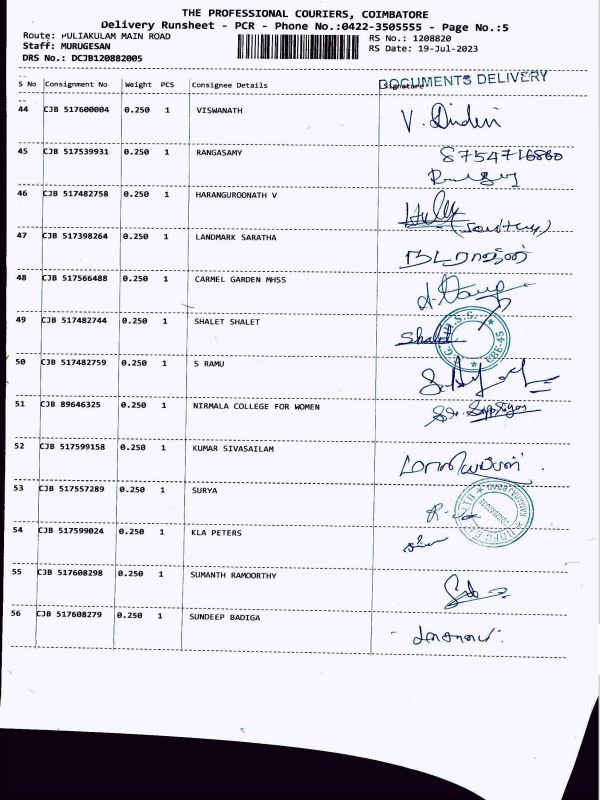 THE PROFESSIONAL COURIERS, COIMBATORE
Delivery Runsheet - PCR - Phone No.:0422-3505555 - Page No.:5
Route: PULIAKULAM MAIN ROAD RS No.: 1208820
Staff: MURUGESAN RS Date: 19-Jul-2023
DRS No.: DCJB120882005
DOCUMENTS DELIVERY
S No Consignment No Weight PCS Consignee Details Signature
44 CJB 517600004 0.250 1 VISWANATH
45 CJB 517539931 0.250 1 RANGASAMY 8754716860
46 CJB 517482758 0.250 1 HARANGUROONATH V
47 CJB 517398264 0.250 1 LANDMARK SARATHA நடராஜன்
48 CJB 517566488 0.250 1 CARMEL GARDEN MHSS
49 CJB 517482744 0.250 1 SHALET SHALET Shalet
50 CJB 517482759 0.250 1 S RAMU
51 CJB 89646325 0.250 1 NIRMALA COLLEGE FOR WOMEN
52 CJB 517599158 0.250 1 KUMAR SIVASAILAM
53 CJB 517557289 0.250 1 SURYA
54 CJB 517599024 0.250 1 KLA PETERS
55 CJB 517608298 0.250 1 SUMANTH RAMOORTHY
56 CJB 517608279 0.250 1 SUNDEEP BADIGA